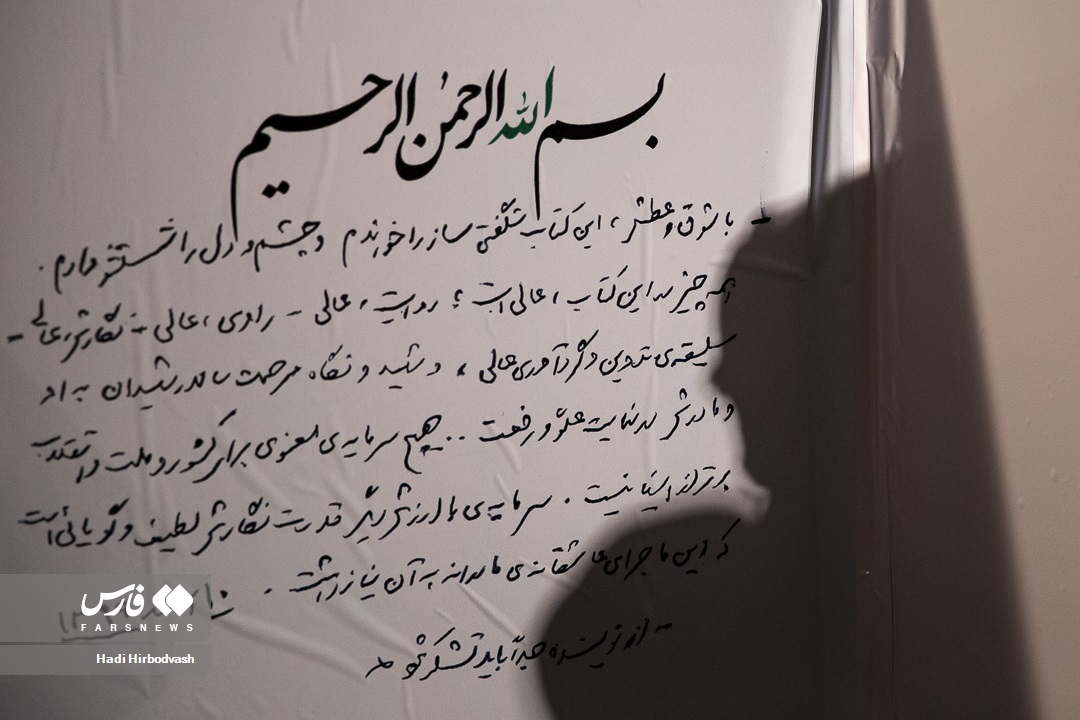 بسم الله الرحمن الرحیم
با شوق و عطش، این کتاب شگفتی‌ساز را خواندم و چشم و دل را شستشو دادم.
همه چیز در این کتاب، عالی است؛ روایت، عالی - راوی، عالی - نگارش، عالی -
سلیقه‌ی تدوین و گردآوری عالی، و شهید و نگاه مرحمت سالار شهیدان به او
و مادرش در نهایت علوّ و رفعت.. هیچ سرمایه‌ی معنوی برای کشور و ملت و انقلاب
برتر از اینها نیست. سرمایه‌ی با ارزش دیگر قدرت نگارش لطیف و گویائی است
که این ماجرای عاشقانه‌ی مادرانه به آن نیاز داشت.
- از نویسنده جداً باید تشکر شود -
فارس
FARSNEWS
Hadi Hirbodvash